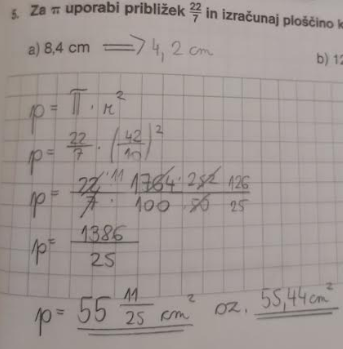 5. Za π uporabi približek 22/7 in izračunaj ploščino k
a) 8,4 cm ⟹ 4,2 cm
b) 12
p = π · r²
p = 22/7 · (42/10)²
p = 22/7 · 11 · 1764/100 · 252/50 126/25
p = 1386/25
p = 55 11/25 cm² oz. 55,44 cm²